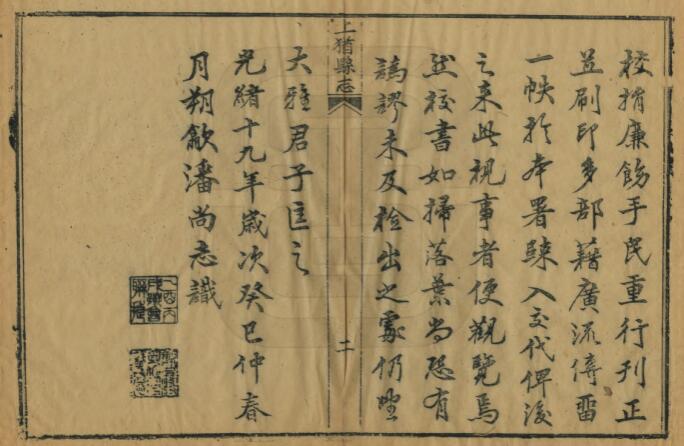 校捐廉飭手民重行刊正
並刷印多部藉廣流傳畱
一帙於本署疎入交代俾後
之来此視事者便觀覽焉
然校書如掃落葉尚恐有
譌謬未及檢出之處仍望
上猶縣志
二
大雅君子匡之
光緒十九年歲次癸巳仲春
月朔歙潘尚志識